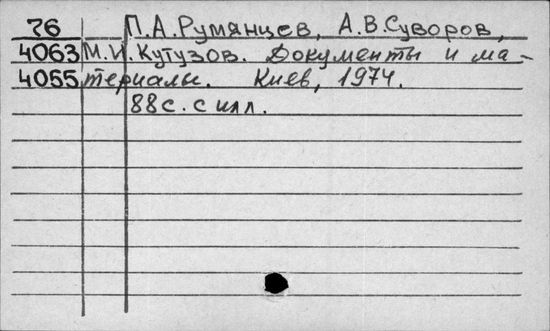 76 П.А.Румянцев, А.В.Суворов,
4063 М.И.Кутузов. Документы и ма-
4055 териалы. Киев, 1974.
88с. с илл.